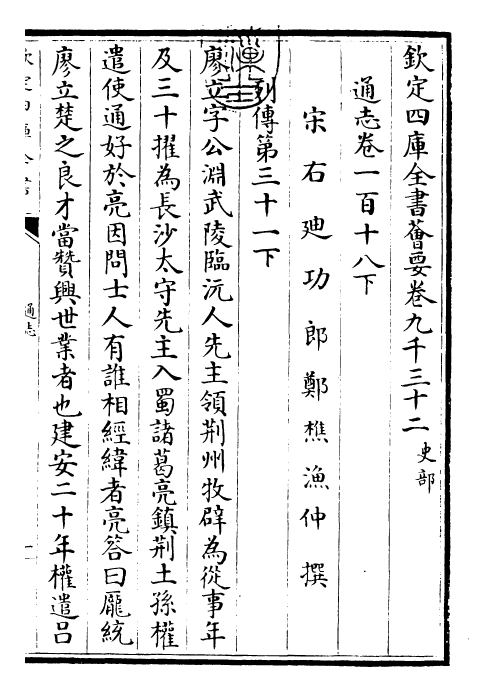 欽定四庫全書薈要卷九千三十二 史部
通志卷一百十八下
宋右廸功郎鄭樵漁仲撰
列傳第三十一下
廖立字公淵武陵臨沅人先主領荆州牧辟為從事年
及三十擢為長沙太守先主入蜀諸葛亮鎮荆土孫權
遣使通好於亮因問士人有誰相經緯者亮答曰龎統
廖立楚之良才當贊興世業者也建安二十年權遣吕
通志